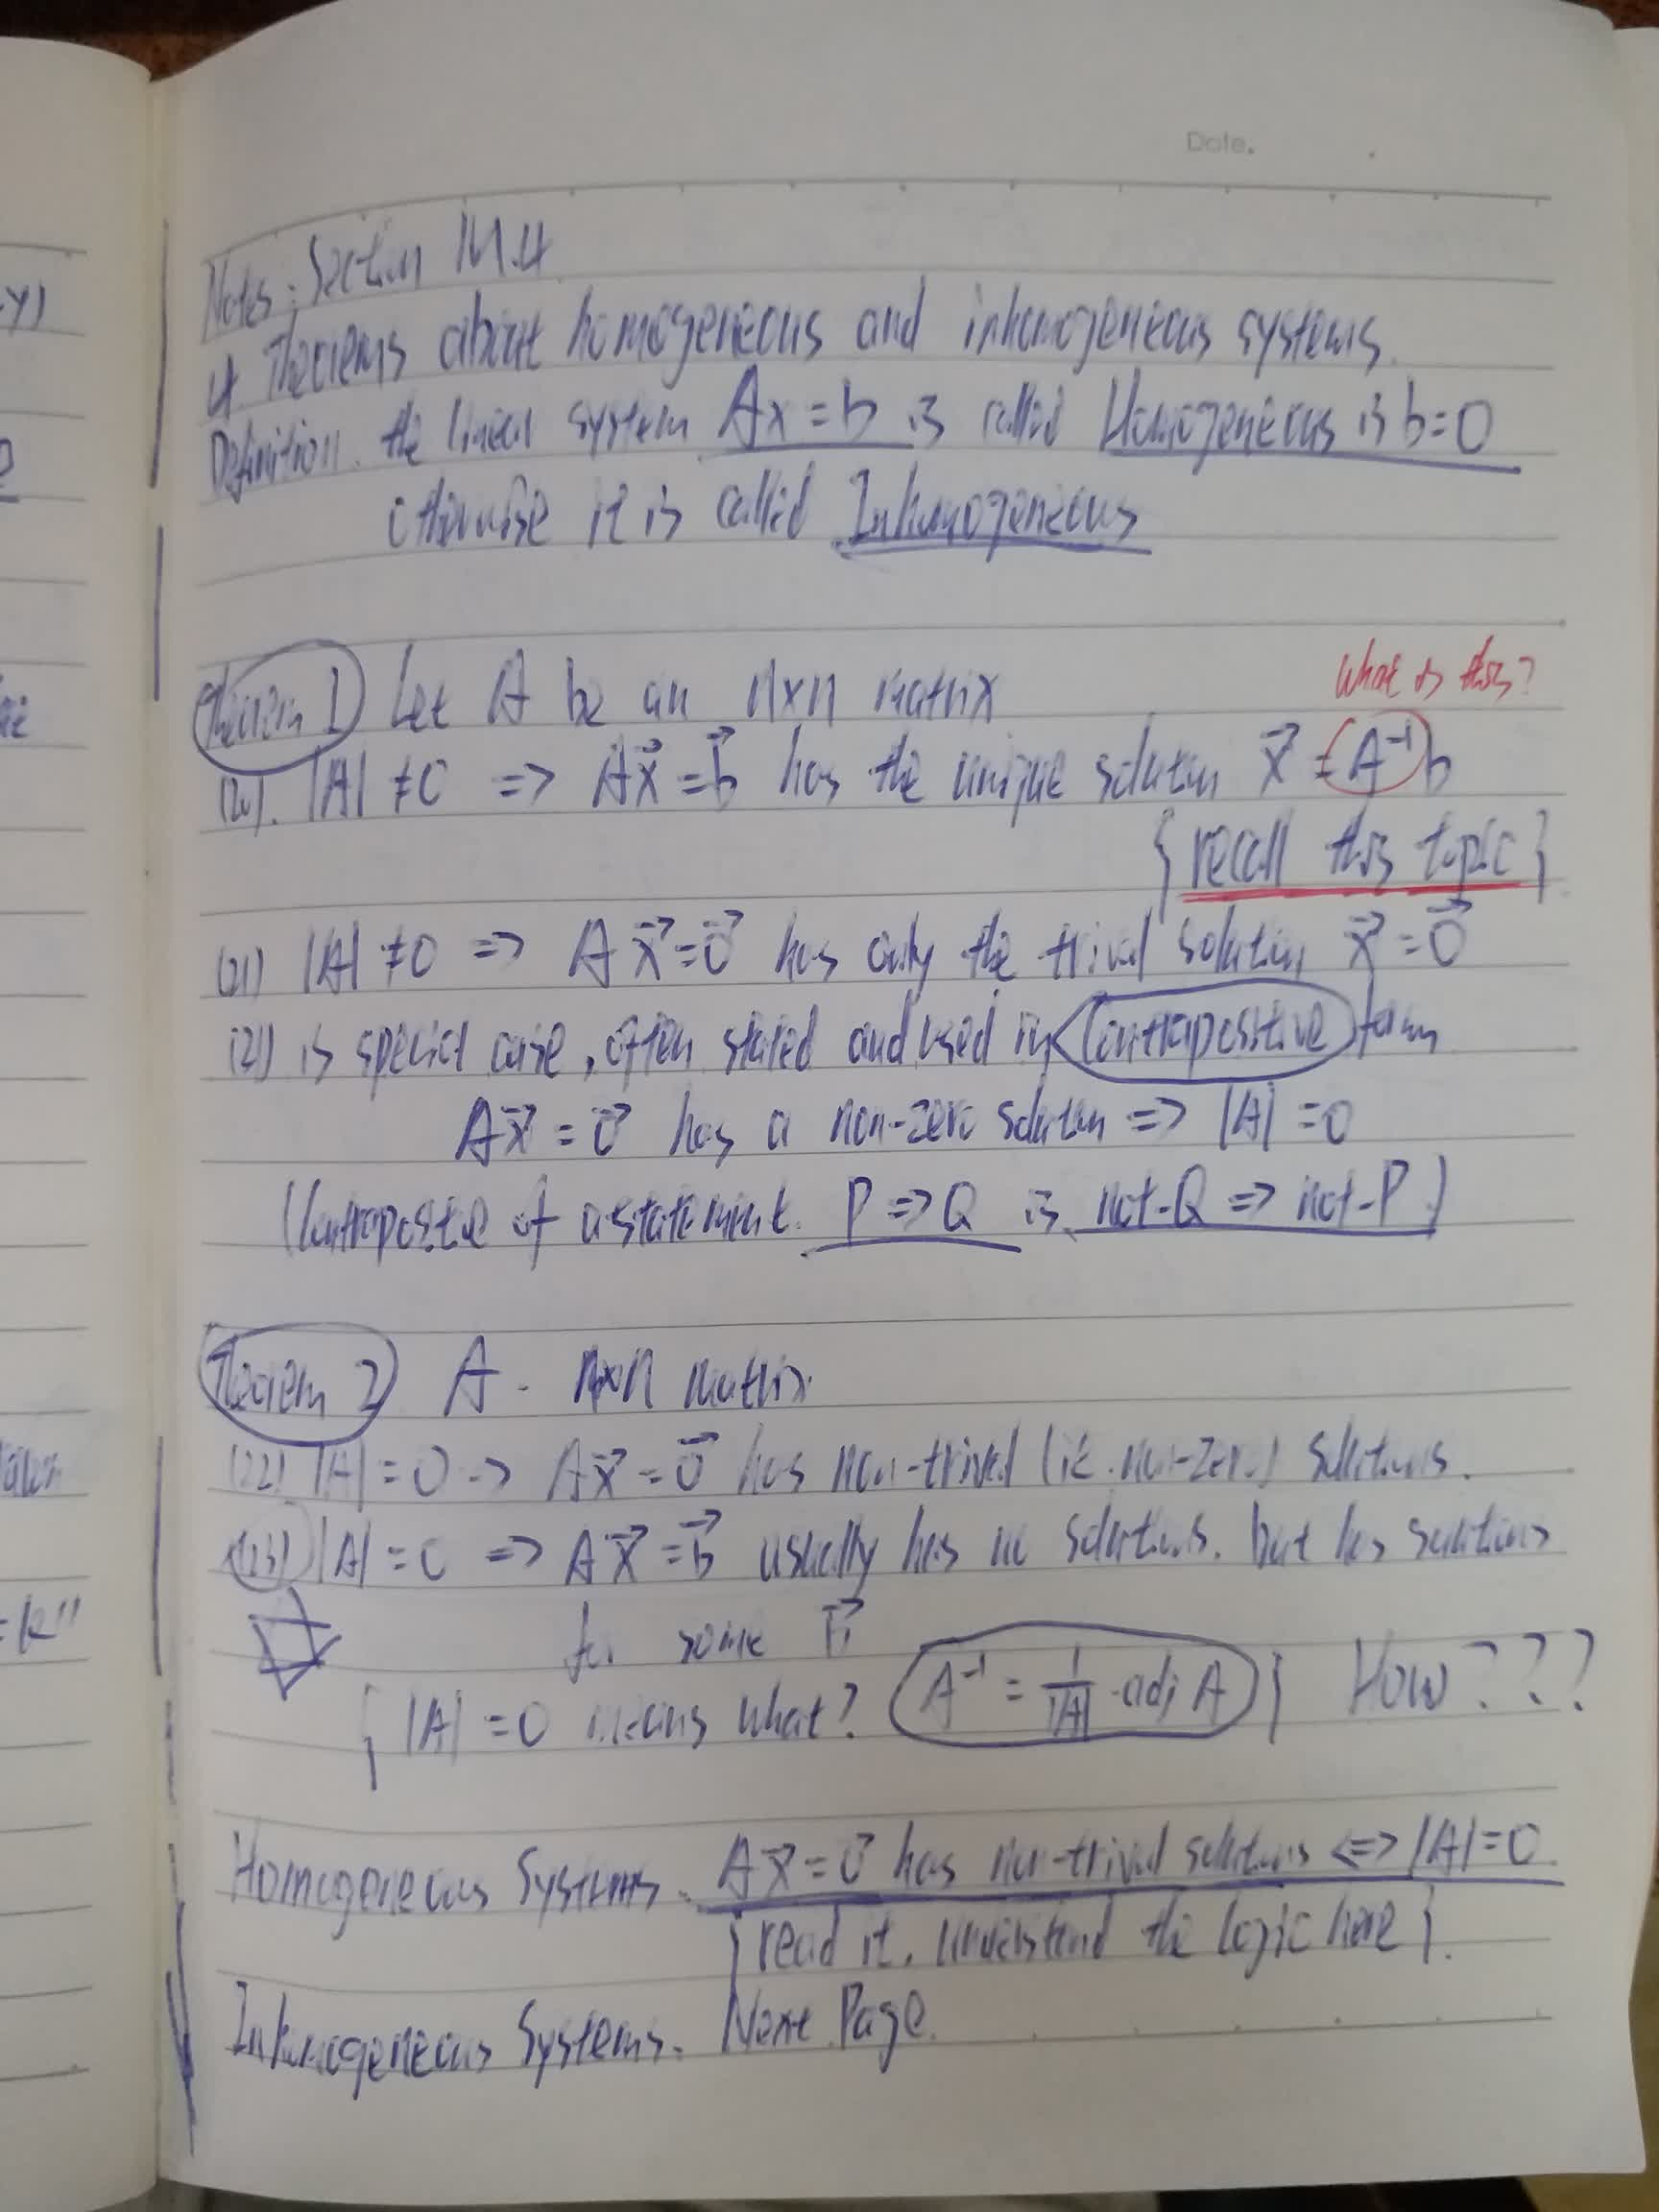 Date.
Notes: Section M.4
4 Theorems about homogeneous and inhomogeneous systems.
Definition. the linear system Ax = b is called Homogeneous is b=0
otherwise it is called Inhomogeneous
Theorem 1 Let A be an n×n matrix
What is this?
(20). |A| ≠ 0 => Ax⃗ = b⃗ has the unique solution x⃗ = A⁻¹b
{recall this topic}
(21) |A| ≠ 0 => Ax⃗ = 0⃗ has only the trival solution x⃗ = 0⃗
(21) is special case, often stated and used in Contrapositive form
Ax⃗ = 0⃗ has a non-zero solution => |A| = 0
(Contrapositive of a statement. P => Q is not-Q => not-P)
Theorem 2 A - n×n matrix.
(22) |A| = 0 -> Ax⃗ = 0⃗ has non-trival (ie. non-zero) solutions.
(23) |A| = 0 => Ax⃗ = b⃗ usually has no solutions. but has solutions
for some b⃗
{ |A| = 0 means what? A⁻¹ = 1/|A| · adj A } How ???
Homogeneous Systems. Ax⃗ = 0⃗ has non-trival solutions <=> |A| = 0.
{read it. understand the logic here}.
Inhomogeneous Systems. Next Page.
-y)
= k"